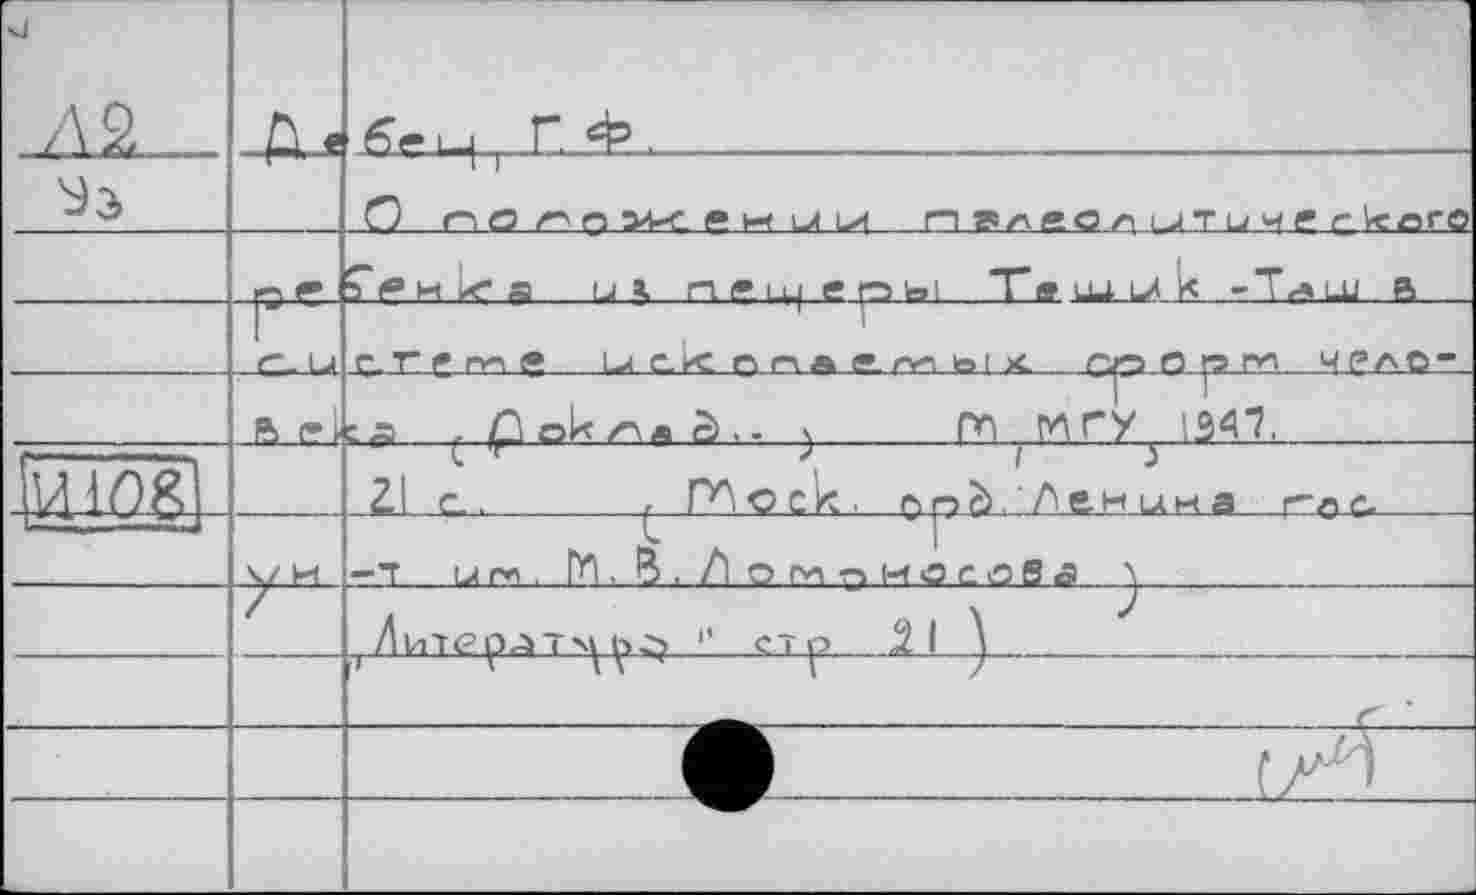 Л2 Дебец, Г. Ф.
Уз О положении палеолитического
ребенка из пещеры Тешик-Таш в
системе ископаемых форм чело-
века. (Доклад..) М, МГУ, 1947.
И108 21 с. (Моск. орд. Ленина гос.
ун-т им. М. В. Ломоносова)
„Литература" стр 21)